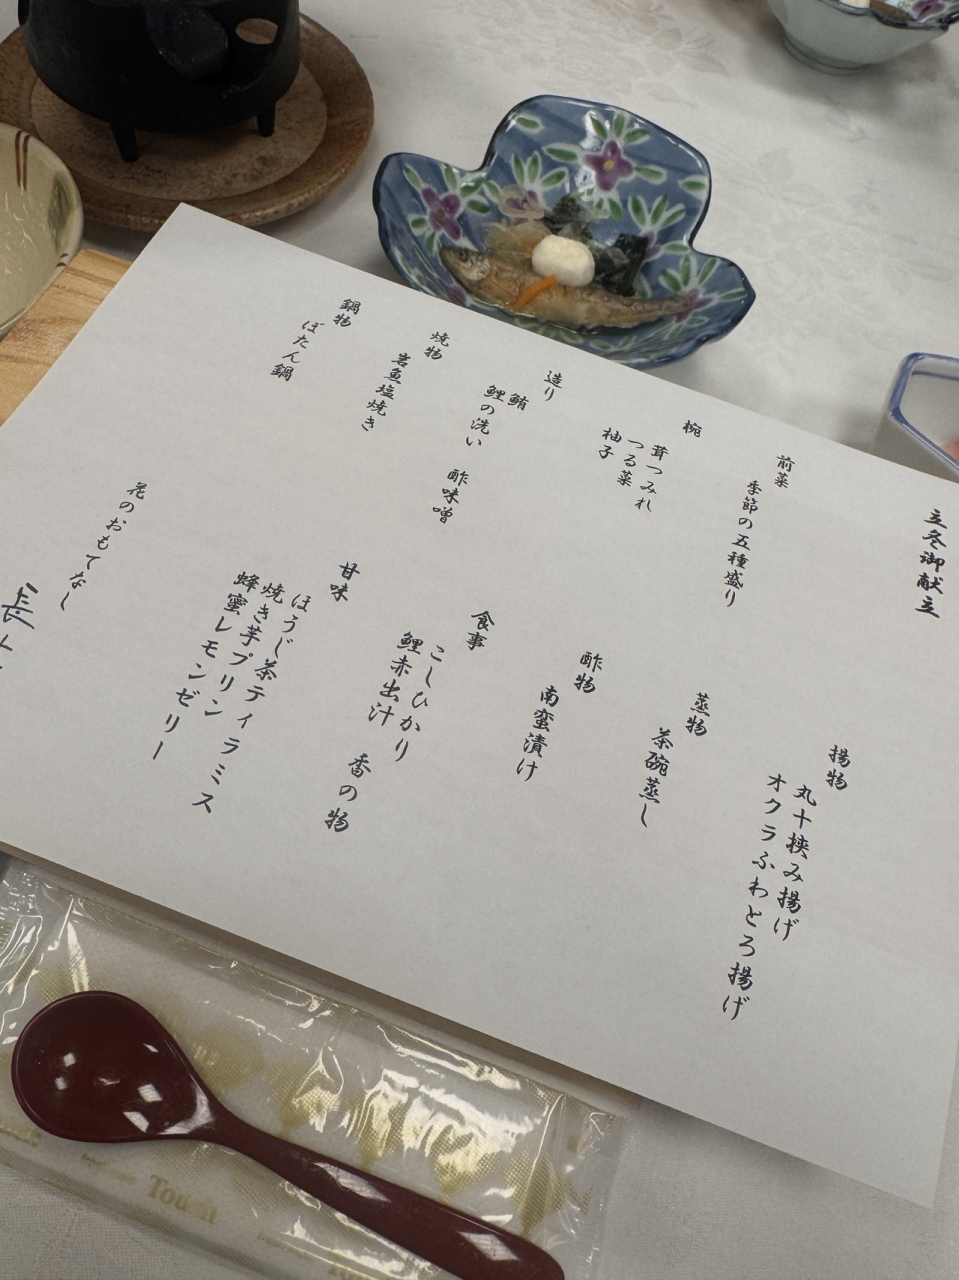 立冬御献立
前菜
季節の五種盛り
椀
茸つみれ
つる菜
柚子
造り
鮪
鯉の洗い 酢味噌
焼物
岩魚塩焼き
鍋物
ぼたん鍋
揚物
丸十挟み揚げ
オクラふわとろ揚げ
蒸物
茶碗蒸し
酢物
南蛮漬け
食事
こしひかり
鯉赤出汁 香の物
甘味
ほうじ茶ティラミス
焼き芋プリン
蜂蜜レモンゼリー
花のおもてなし
長
Touch